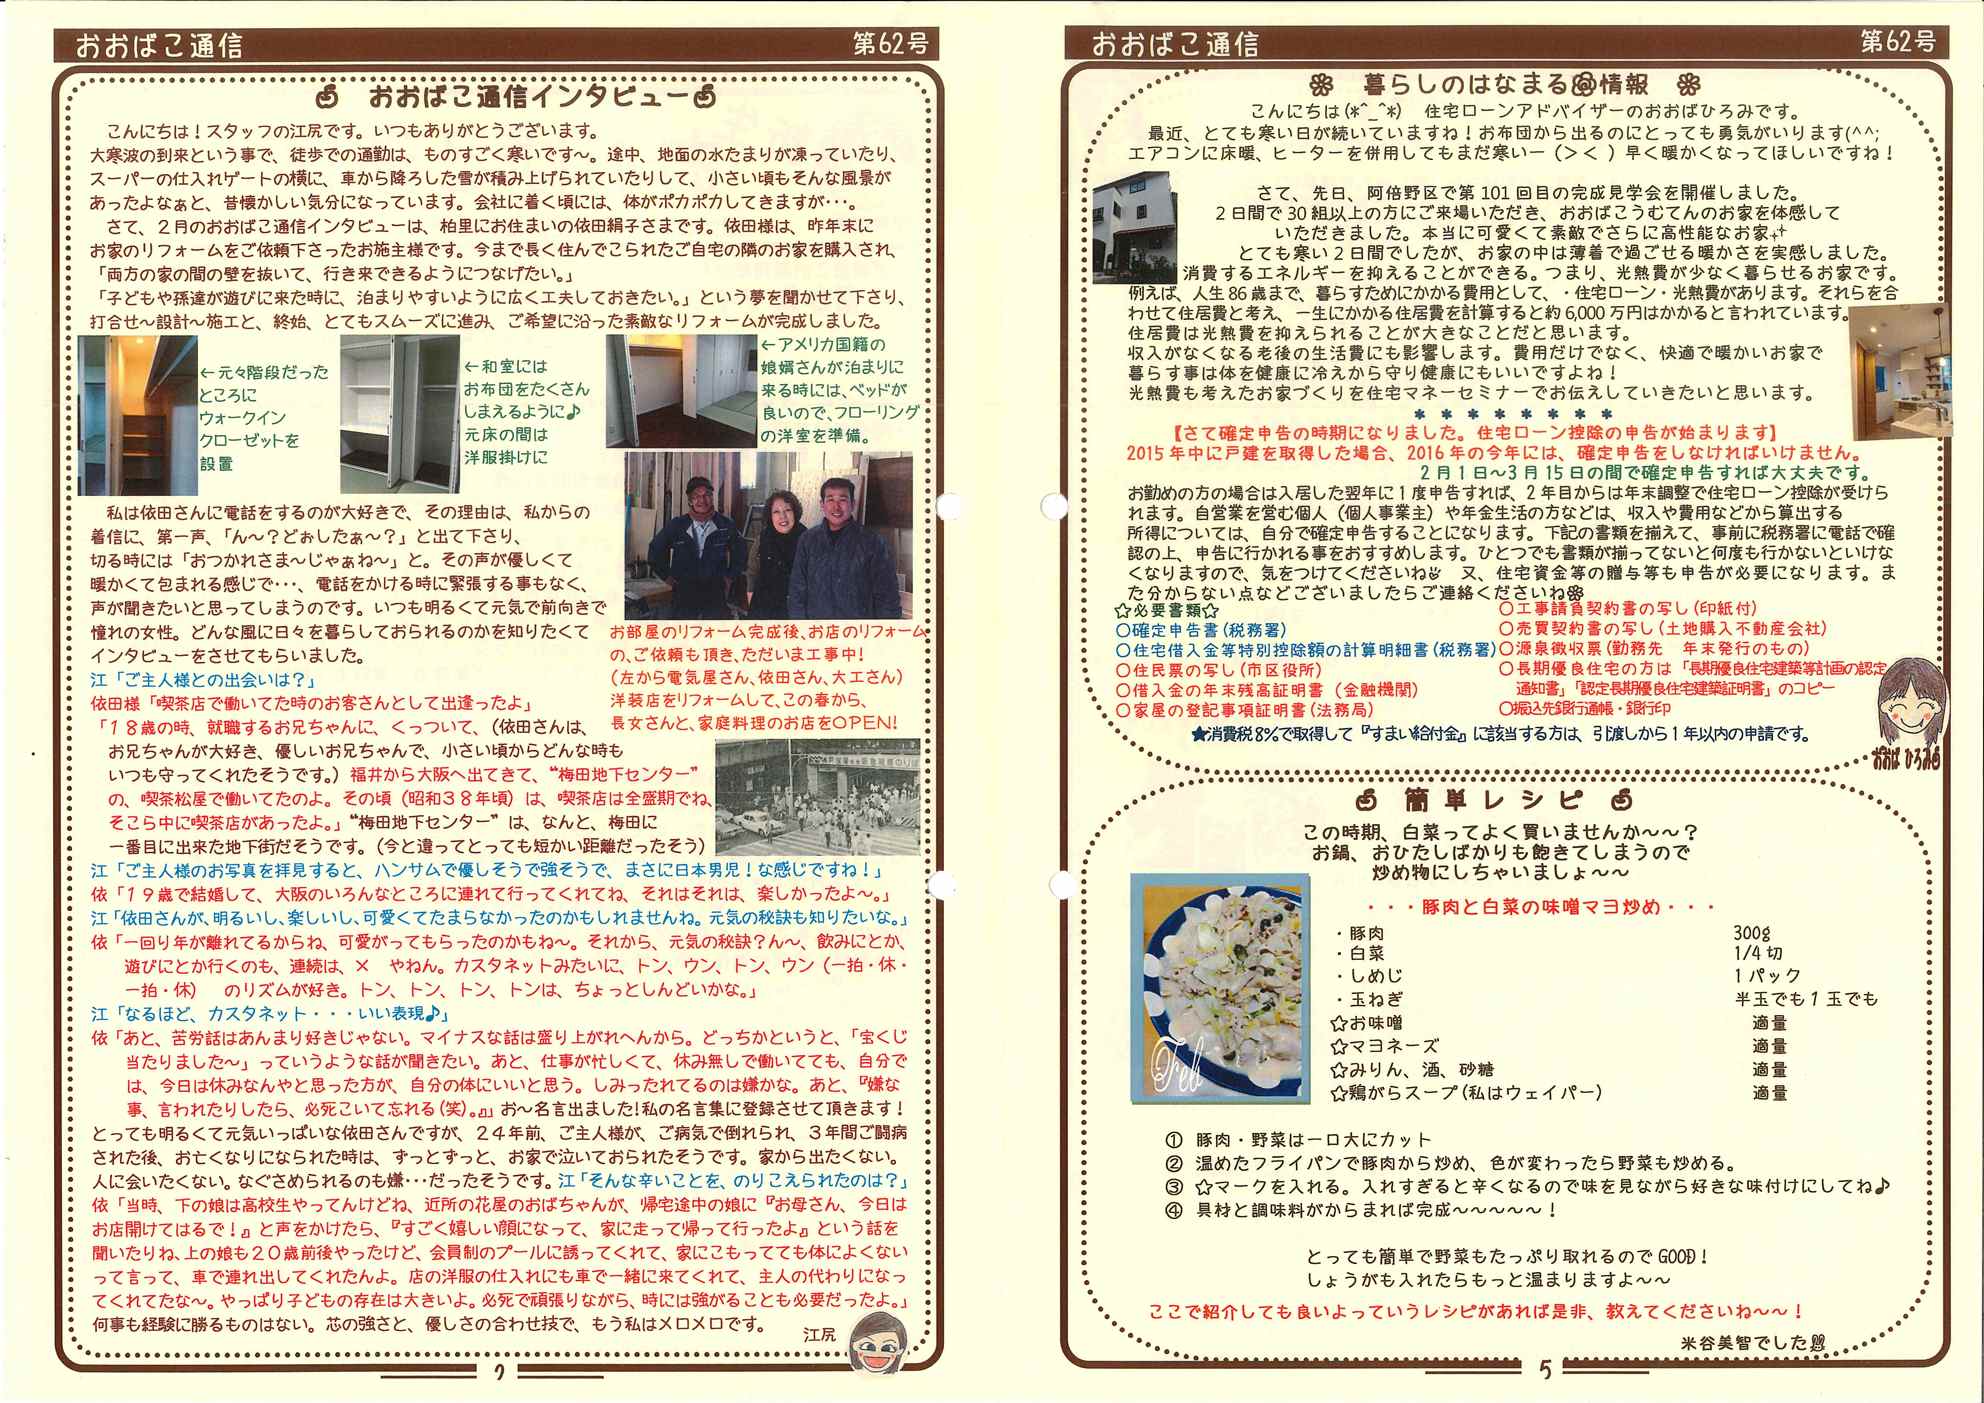 おおばこ通信
第62号
おおばこ通信インタビュー
こんにちは！スタッフの江尻です。いつもありがとうございます。
大寒波の到来という事で、徒歩での通勤は、ものすごく寒いです～。途中、地面の水たまりが凍っていたり、
スーパーの仕入れゲートの横に、車から降ろした雪が積み上げられていたりして、小さい頃もそんな風景が
あったよなぁと、昔懐かしい気分になっています。会社に着く頃には、体がポカポカしてきますが･･･。
さて、２月のおおばこ通信インタビューは、柏里にお住まいの依田絹子さまです。依田様は、昨年末に
お家のリフォームをご依頼下さったお施主様です。今まで長く住んでこられたご自宅の隣のお家を購入され、
「両方の家の間の壁を抜いて、行き来できるようにつなげたい。」
「子どもや孫達が遊びに来た時に、泊まりやすいように広く工夫しておきたい。」という夢を聞かせて下さり、
打合せ～設計～施工と、終始、とてもスムーズに進み、ご希望に沿った素敵なリフォームが完成しました。
←元々階段だった
ところに
ウォークイン
クローゼットを
設置
←和室には
お布団をたくさん
しまえるように♪
元床の間は
洋服掛けに
←アメリカ国籍の
娘婿さんが泊まりに
来る時には、ベッドが
良いので、フローリング
の洋室を準備。
私は依田さんに電話をするのが大好きで、その理由は、私からの
着信に、第一声、「ん～？どぉしたぁ～？」と出て下さり、
切る時には「おつかれさま～じゃぁね～」と。その声が優しくて
暖かくて包まれる感じで･･･、電話をかける時に緊張する事もなく、
声が聞きたいと思ってしまうのです。いつも明るくて元気で前向きで
憧れの女性。どんな風に日々を暮らしておられるのかを知りたくて
インタビューをさせてもらいました。
お部屋のリフォーム完成後、お店のリフォーム
の、ご依頼も頂き、ただいま工事中！
（左から電気屋さん、依田さん、大工さん）
洋装店をリフォームして、この春から、
長女さんと、家庭料理のお店をOPEN！
江「ご主人様との出会いは？」
依田様「喫茶店で働いてた時のお客さんとして出逢ったよ」
「１８歳の時、就職するお兄ちゃんに、くっついて、（依田さんは、
お兄ちゃんが大好き、優しいお兄ちゃんで、小さい頃からどんな時も
いつも守ってくれたそうです。）福井から大阪へ出てきて、“梅田地下センター”
の、喫茶松屋で働いてたのよ。その頃（昭和３８年頃）は、喫茶店は全盛期でね、
そこら中に喫茶店があったよ。」“梅田地下センター”は、なんと、梅田に
一番目に出来た地下街だそうです。（今と違ってとっても短かい距離だったそう）
江「ご主人様のお写真を拝見すると、ハンサムで優しそうで強そうで、まさに日本男児！な感じですね！」
依「１９歳で結婚して、大阪のいろんなところに連れて行ってくれてね、それはそれは、楽しかったよ～。」
江「依田さんが、明るいし、楽しいし、可愛くてたまらなかったのかもしれませんね。元気の秘訣も知りたいな。」
依「一回り年が離れてるからね、可愛がってもらったのかもね～。それから、元気の秘訣？ん～、飲みにとか、
遊びにとか行くのも、連続は、×　やねん。カスタネットみたいに、トン、ウン、トン、ウン（一拍・休・
一拍・休）　のリズムが好き。トン、トン、トン、トンは、ちょっとしんどいかな。」
江「なるほど、カスタネット・・・いい表現♪」
依「あと、苦労話はあんまり好きじゃない。マイナスな話は盛り上がれへんから。どっちかというと、「宝くじ
当たりました～」っていうような話が聞きたい。あと、仕事が忙しくて、休み無しで働いてても、自分で
は、今日は休みなんやと思った方が、自分の体にいいと思う。しみったれてるのは嫌かな。あと、『嫌な
事、言われたりしたら、必死こいて忘れる（笑）。』」お～名言出ました！私の名言集に登録させて頂きます！
とっても明るくて元気いっぱいな依田さんですが、２４年前、ご主人様が、ご病気で倒れられ、３年間ご闘病
された後、お亡くなりになられた時は、ずっとずっと、お家で泣いておられたそうです。家から出たくない。
人に会いたくない。なぐさめられるのも嫌･･･だったそうです。江「そんな辛いことを、のりこえられたのは？」
依「当時、下の娘は高校生やってんけどね、近所の花屋のおばちゃんが、帰宅途中の娘に『お母さん、今日は
お店開けてはるで！』と声をかけたら、『すごく嬉しい顔になって、家に走って帰って行ったよ』という話を
聞いたりね、上の娘も２０歳前後やったけど、会員制のプールに誘ってくれて、家にこもってても体によくない
って言って、車で連れ出してくれたんよ。店の洋服の仕入れにも車で一緒に来てくれて、主人の代わりになっ
てくれてたな～。やっぱり子どもの存在は大きいよ。必死で頑張りながら、時には強がることも必要だったよ。」
何事も経験に勝るものはない。芯の強さと、優しさの合わせ技で、もう私はメロメロです。
江尻
おおばこ通信
第62号
暮らしのはなまる@情報
こんにちは(*^_^*)　住宅ローンアドバイザーのおおばひろみです。
最近、とても寒い日が続いていますね！お布団から出るのにとっても勇気がいります(^^;
エアコンに床暖、ヒーターを併用してもまだ寒いー（＞＜）早く暖かくなってほしいですね！
さて、先日、阿倍野区で第101回目の完成見学会を開催しました。
２日間で30組以上の方にご来場いただき、おおばこうむてんのお家を体感して
いただきました。本当に可愛くて素敵でさらに高性能なお家
とても寒い２日間でしたが、お家の中は薄着で過ごせる暖かさを実感しました。
消費するエネルギーを抑えることができる。つまり、光熱費が少なく暮らせるお家です。
例えば、人生86歳まで、暮らすためにかかる費用として、・住宅ローン・光熱費があります。それらを合
わせて住居費と考え、一生にかかる住居費を計算すると約6,000万円はかかると言われています。
住居費は光熱費を抑えられることが大きなことだと思います。
収入がなくなる老後の生活費にも影響します。費用だけでなく、快適で暖かいお家で
暮らす事は体を健康に冷えから守り健康にもいいですよね！
光熱費も考えたお家づくりを住宅マネーセミナーでお伝えしていきたいと思います。
＊＊＊＊＊＊＊＊
【さて確定申告の時期になりました。住宅ローン控除の申告が始まります】
2015年中に戸建を取得した場合、2016年の今年には、確定申告をしなければいけません。
２月１日～３月15日の間で確定申告すれば大丈夫です。
お勤めの方の場合は入居した翌年に１度申告すれば、２年目からは年末調整で住宅ローン控除が受けら
れます。自営業を営む個人（個人事業主）や年金生活の方などは、収入や費用などから算出する
所得については、自分で確定申告することになります。下記の書類を揃えて、事前に税務署に電話で確
認の上、申告に行かれる事をおすすめします。ひとつでも書類が揃ってないと何度も行かないといけな
くなりますので、気をつけてくださいね　又、住宅資金等の贈与等も申告が必要になります。ま
た分からない点などございましたらご連絡くださいね
☆必要書類☆
○確定申告書（税務署）
○住宅借入金等特別控除額の計算明細書（税務署）
○住民票の写し（市区役所）
○借入金の年末残高証明書（金融機関）
○家屋の登記事項証明書（法務局）
○工事請負契約書の写し（印紙付）
○売買契約書の写し（土地購入不動産会社）
○源泉徴収票（勤務先　年末発行のもの）
○長期優良住宅の方は「長期優良住宅建築等計画の認定
通知書」「認定長期優良住宅建築証明書」のコピー
○振込先銀行通帳・銀行印
★消費税8％で取得して『すまい給付金』に該当する方は、引渡しから１年以内の申請です。
おおば ひろみ
簡単レシピ
この時期、白菜ってよく買いませんか～～？
お鍋、おひたしばかりも飽きてしまうので
炒め物にしちゃいましょ～～
・・・豚肉と白菜の味噌マヨ炒め・・・
・豚肉　300g
・白菜　1/4切
・しめじ　１パック
・玉ねぎ　半玉でも１玉でも
☆お味噌　適量
☆マヨネーズ　適量
☆みりん、酒、砂糖　適量
☆鶏がらスープ（私はウェイパー）　適量
Feli
① 豚肉・野菜は一口大にカット
② 温めたフライパンで豚肉から炒め、色が変わったら野菜も炒める。
③ ☆マークを入れる。入れすぎると辛くなるので味を見ながら好きな味付けにしてね♪
④ 具材と調味料がからまれば完成～～～～～！
とっても簡単で野菜もたっぷり取れるのでGOOD！
しょうがも入れたらもっと温まりますよ～～
ここで紹介しても良いよっていうレシピがあれば是非、教えてくださいね～～！
米谷美智でした
5